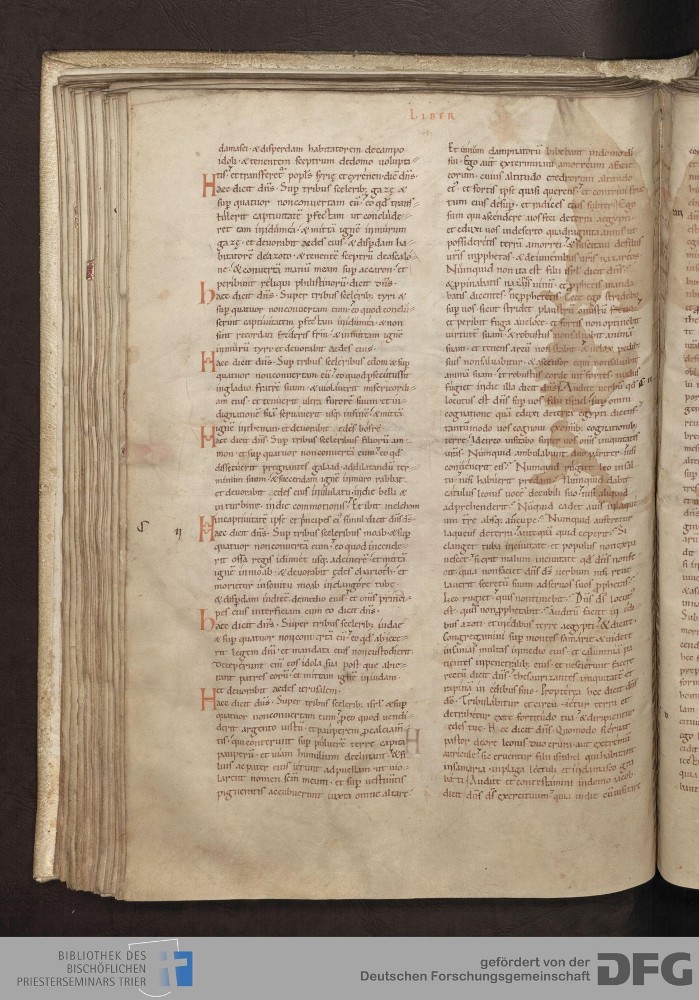 LIBER
damasci · & disperdam habitatorem decampo
idoli · & tenentem sceptrum dedomo volupta
tis · et transferet᷒ popłs syrię et cyrenen · dic̄ dn̄s ·
Haec dicit dn̄s · Sup tribus sceleribꝫ gazę &
sup quatuor nonconvertam eū · eo qđ trans
tulerit captivitatē pfectam ut conclude
ret eam in idumea · & mittā ignē inmurum
gazę · et devorabit aedes eius · & disperdam ha
bitatorē deazoto · & tenentē sceptrū deascalo
ne · & convertā manū meam sup accaron · et
peribunt reliqui philistinorū dicit dn̄s ·
Haec dicit dn̄s · Super tribus sceleribꝫ tyri &
sup quatuor nonconvertam eum · eo quod conclu
serint captivitatem pfectam in idumea · & non
sint recordati foederis frm̄ · & inmittam ignē
inmurū tyri et devorabit aedes eius ·
Haec dicit dn̄s · Sup tribus sceleribus edom & sup
quatuor nonconvertam eū · eo quod psecutus sit
ingladio fratrē suum · & violaverit misericordi
am eius · et tenuerit ultra furorē suum et in
dignationē suā servaverit usq᷒ infinē · & mittā
ignē intheman · et devorabit aedes bosrę ·
Haec dicit dn̄s · Sup tribus sceleribus filiorū am
mon · et sup quatuor nonconvertā eum · eo qđ
dissecuerit pregnantes galaad · addilatandū ter
minum suum · & succendam ignē inmuro rabbat
et devorabit aedes eius inululatu · indie belli &
inturbine · indie commotionis · Et ibit melchom
incaptivitatē ipse et principes eī simul dicit dn̄s
Haec dicit dn̄s · Sup tribus sceleribus moab · & sup
quatuor nonconvertā eum · eo quod incende
rit ossa regis idumeę usq᷒ adcinerē · et mittā
ignē inmoab · & devorabit ędes charioth · et
morietur insonitu moab inclangore tubę ·
& disperdam iudicē demedio eius · et om̄s princi
pes eius interficiam cum eo dicit dn̄s ·
Haec dicit dn̄s · Super tribus sceleribꝫ iudae
& sup quatuor nonconvertā eū · eo qđ abiece
rit legem dn̄i · et mandata eius noncustodierit ·
Deceperunt enī eos idola sua post que abie
rant patres eorū · et mittam ignē iniudam ·
et devorabit aedes ierusalem ·
Haec dicit dn̄s · Super tribus sceleribꝫ isrl̄ & sup
quatuor nonconvertam eum · pro eo quod vendi
derit argento iustū · et pauperem pro calciam
tis · qui conterunt sup pulverē terre capita
pauperū · et viam humilium declinant · & fi
lius ac pater eius ierunt adpuellam ut vio
larent nomen sc̄m meum · et sup vestimtis
pigneratis accubuerunt iuxta omne altare ·
Et vinum dampnatorū bibebant indomo dī
sui · Ego aut̄ exterminavi amorreum afacie
eorum · cuius altitudo cedrorum altitudo
ei · et fortis ipse quasi quercus · et contrivi fruc
tum eius desup · et radices eius subter · Ego
sum qui ascendere vos feci deterra aegypti ·
et eduxi vos indeserto quadraginta annis ut
possideretis terrā amorrei · & suscitavi defiliis
vr̄is inpphetas · & deiuvenibus vr̄is nazareos ·
Nūmquid non ita est filii isrl̄ dicit dn̄s ·
& ppinabatis nazareis vinū · et pphetis manda
batis dicentes · ne pphetetis · Ecce ego stridebo
sup vos sicut stridet plaustrū onustū
et peribit fuga aveloce · et fortis non optinebit
virtutē suam · & robustus nonsalvabit animā
suam · et tenens arcū nonstabit · & velox pedibꝫ
suis nonsalvabitur · & ascensor equi nonsalvabit
animā suam · et robustus corde int̄ fortes nudus
fugiet indie illa dicit dn̄s · Audite verbū qđ
locutus est dn̄s sup vos filii isrl̄ · sup omni
cognatione quā eduxi deterra egypti dicens ·
tantūmodo vos cognovi exomnibꝫ cognationibꝫ
terre · Idcirco visitabo sup vos om̄s iniquitates
vr̄as · Numquid ambulabunt duo pariter · nisi
convenerit eis · Numquid rugiet leo insal
tu · nisi habuerit predam · Numquid dabit
catulus leonis vocē decubili suo · nisi aliquid
adprehenderit · Nūquid cadet avis inlaqueū
terre absq᷒ aucupe · Numquid auferetur
laqueus deterra · antequā quid ceperit · Si
clanget tuba incivitate · et populus nonexpa
vescet · Si erit malum incivitate qđ dn̄s nonfe
cit · quia nonfaciet dn̄s ds̄ verbum nisi reve
laverit secretū suum adservos suos pphetas ·
Leo rugiet · quis nontimebit · Dn̄s ds̄ locut᷒
est · quis non pphetabit · Auditū facite in ędi
bus azoti · et inędibus terre aegypti · & dicite ·
Congregamini sup montes samarię · & videte
insanias multas inmedio eius · et calumniā pa
tientes inpenetralibꝫ eius · et nescierunt facere
rectū dicit dn̄s · thesaurizantes iniquitatē et
rapinā in edibus suis · Propterea hec dicit dn̄s
ds̄ · Tribulabitur et circu · ietur terra et
detrahetur exte fortitudo tua · & diripientur
aedes tue · Hec dicit dn̄s · Quomodo si eruat
pastor deore leonis duo crura · aut extremū
auricule · sic eruentur filii israhel qui habitant
insamaria · inplaga lectuli · et indamasco gra
bati · Audite et contestamini indomo iacob ·
dicit dn̄s ds̄ exercituum · quia indie cū visitare
BIBLIOTHEK DES
BISCHÖFLICHEN
PRIESTERSEMINARS TRIER
gefördert von der
Deutschen Forschungsgemeinschaft
DFG